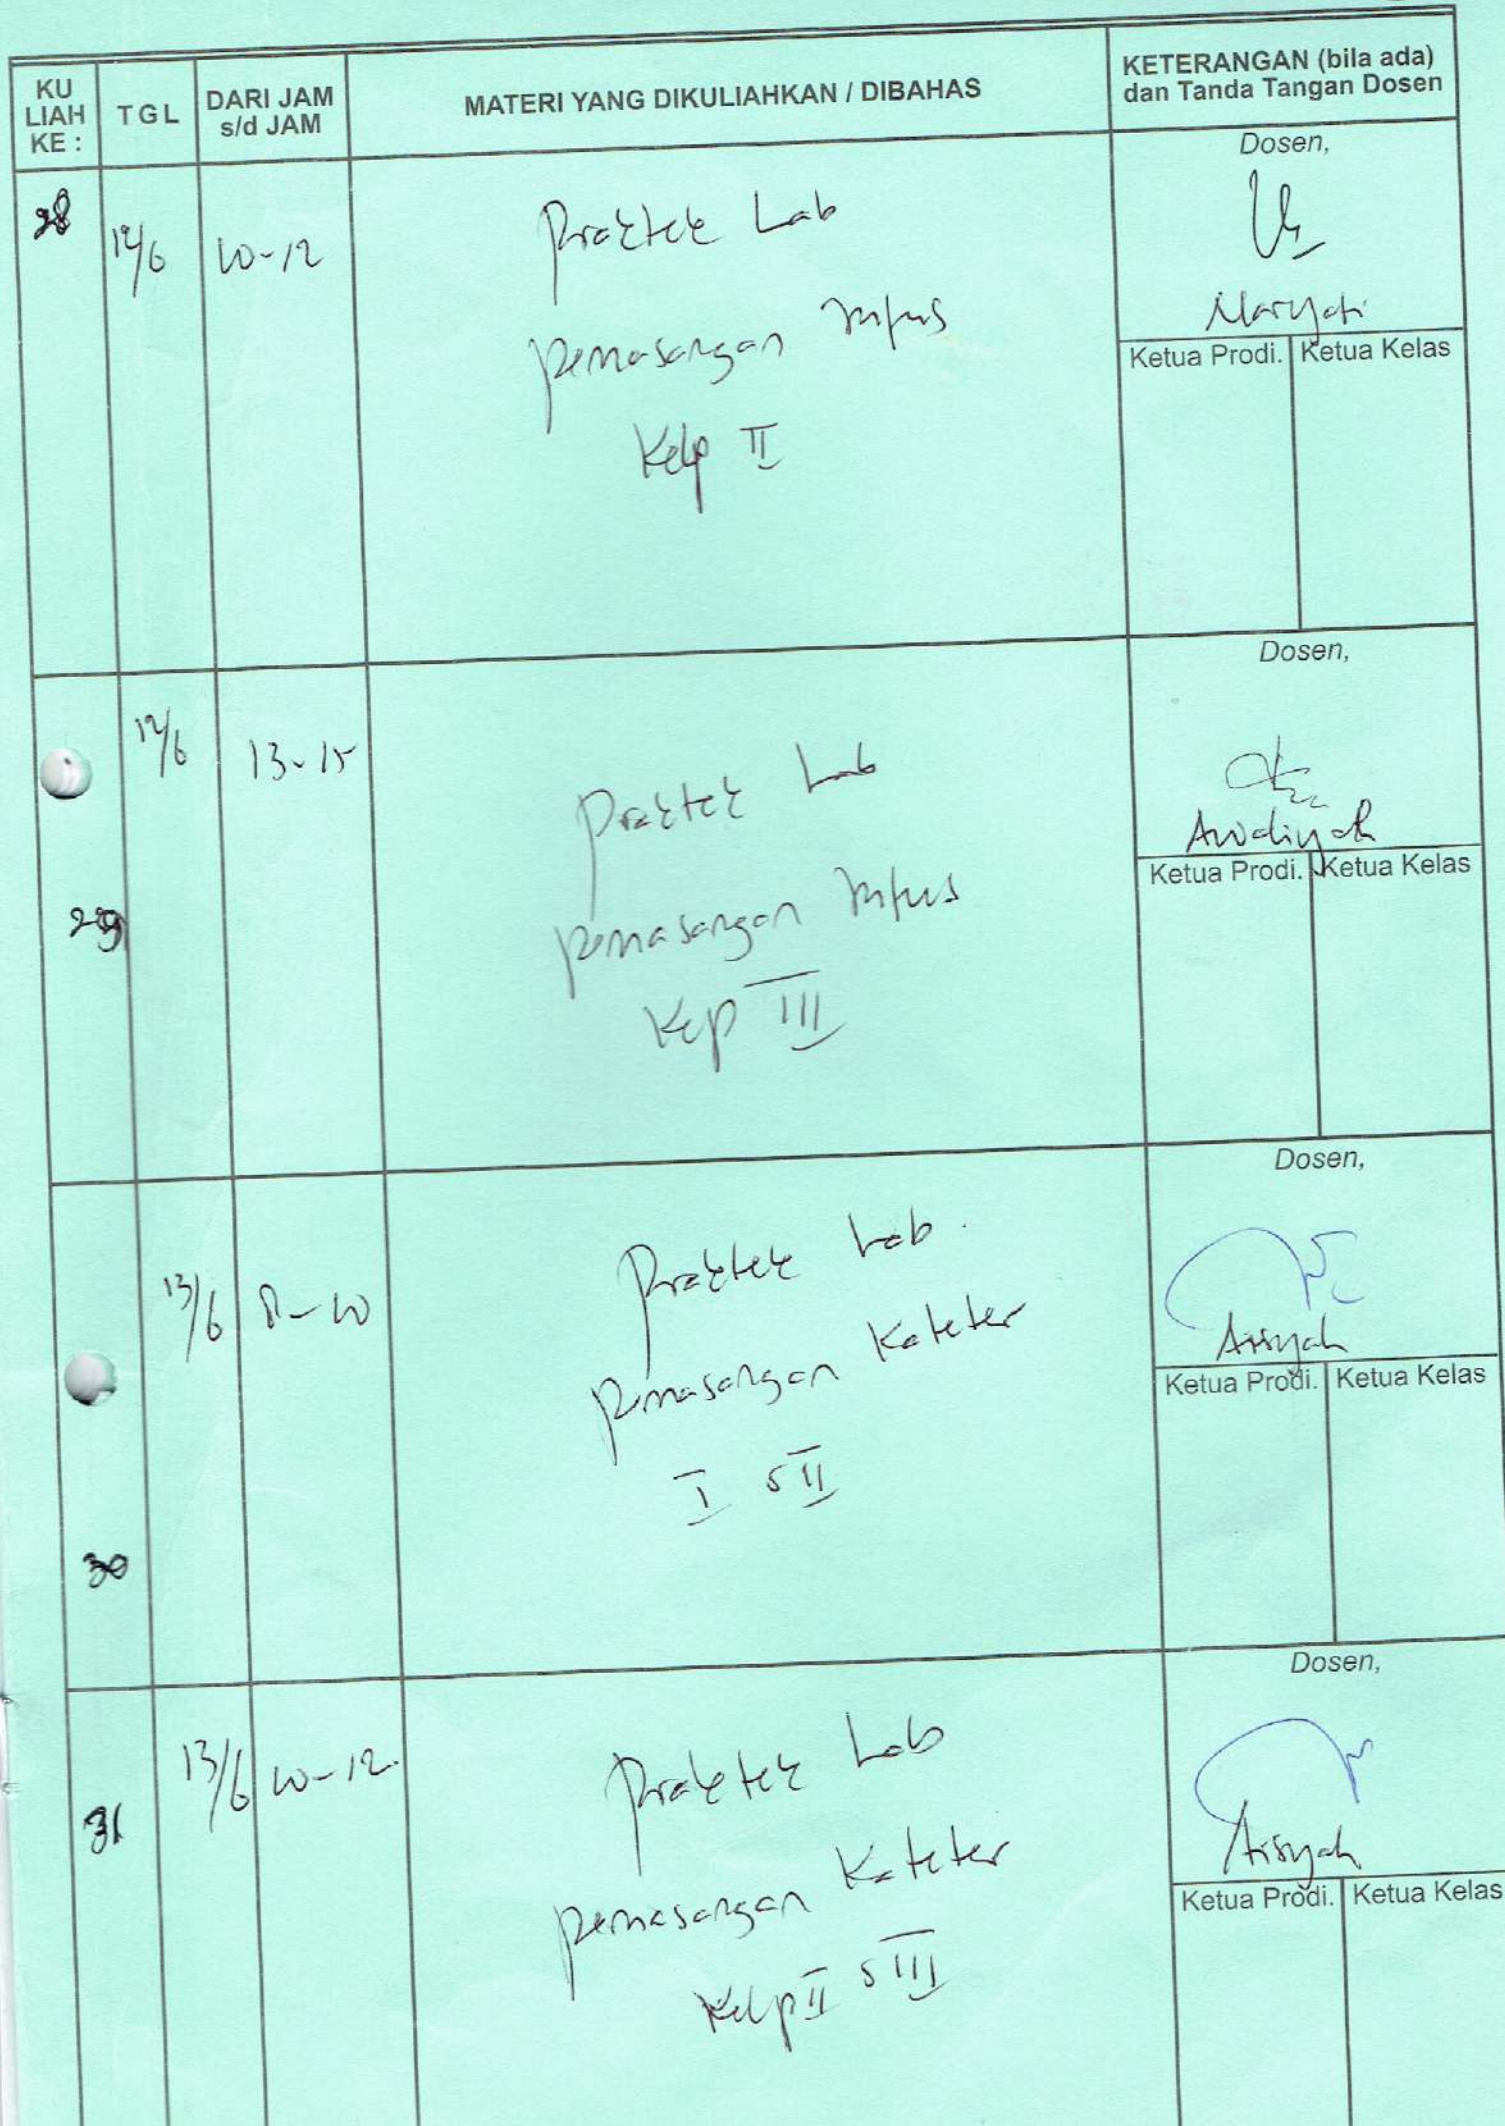 KU LIAH KE :
TGL
DARI JAM s/d JAM
MATERI YANG DIKULIAHKAN / DIBAHAS
KETERANGAN (bila ada) dan Tanda Tangan Dosen
28
12/6
10-12
Praktek Lab
pemasangan infus
Kelp II
Dosen,
Maryati
Ketua Prodi.
Ketua Kelas
29
12/6
13-15
Praktek Lab
pemasangan infus
Kep III
Dosen,
Awaliyah
Ketua Prodi.
Ketua Kelas
30
13/6
8-10
Praktek Lab.
pemasangan Kateter
I II
Dosen,
Aisyah
Ketua Prodi.
Ketua Kelas
31
13/6
10-12.
Praktek Lab
pemasangan Kateter
Kelp II III
Dosen,
Aisyah
Ketua Prodi.
Ketua Kelas